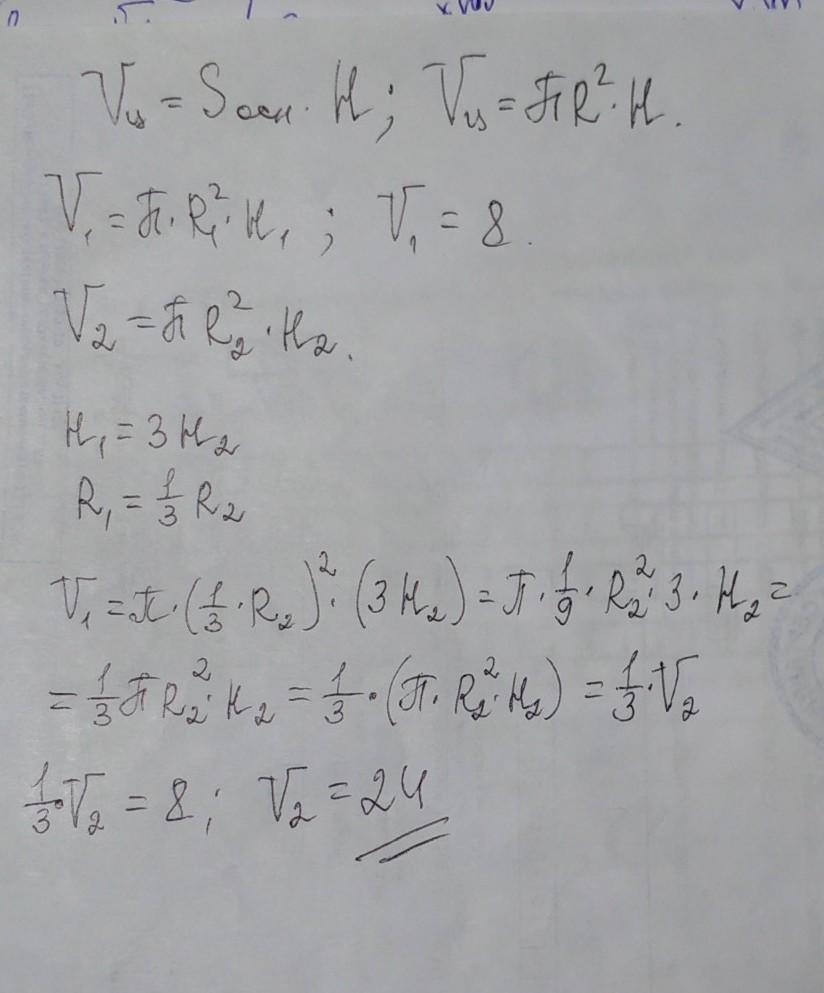 Vц = Sосн · H; Vц = πR² · H.
V₁ = π · R₁² · H₁ ; V₁ = 8.
V₂ = π R₂² · H₂.
H₁ = 3 H₂
R₁ = 1/3 R₂
V₁ = π · (1/3 · R₂)² · (3 H₂) = π · 1/9 · R₂² · 3 · H₂ =
= 1/3 π R₂² · H₂ = 1/3 · (π · R₂² · H₂) = 1/3 · V₂
1/3 · V₂ = 8 ; V₂ = 24